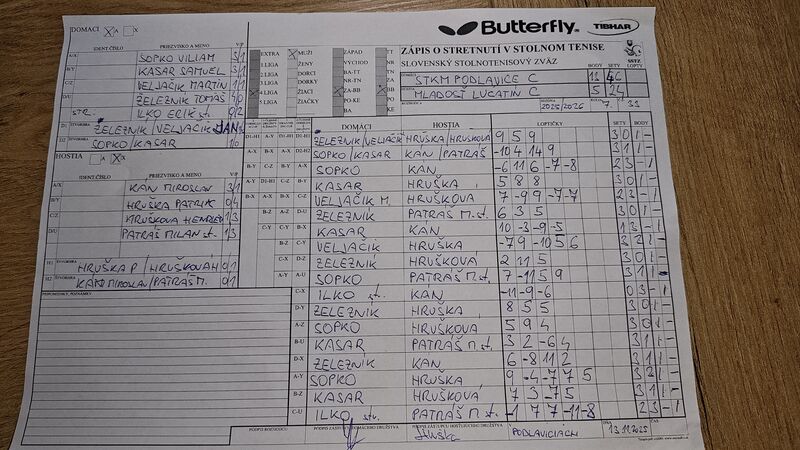 DOMACI A X
Butterfly
TIBHAR
IDENT.ČÍSLO PRIEZVISKO A MENO V/P
A/X SOPKO VILIAM 3/1
B/Y KASAR SAMUEL 3/1
C/Z VELJAČIK MARTIN 1/1
D/U ŽELEZNÍK TOMÁŠ 4/0
STR. ILKO ERIK st. 0/2
ŽELEZNÍK/VELJAČIK JÁN
SOPKO/KASAR 1/0
EXTRA MUŽI ZÁPAD TT
1.LIGA ŽENY VÝCHOD NR
2.LIGA DORCI BA-TT KE
3.LIGA DORKY NR-TN PO
4.LIGA ŽIACI ZA-BB BB
5.LIGA ŽIAČKY PO-KE
ZÁPIS O STRETNUTÍ V STOLNOM TENISE
SLOVENSKÝ STOLNOTENISOVÝ ZVÄZ
SSTZ
BODY SETY LOPTY
STKM PODLAVICE C 11 46
MLADOSŤ LUCATÍN C 5 24
SEZÓNA 2025/2026 KOLO 7.
HOSTIA A X
IDENT.ČÍSLO PRIEZVISKO A MENO V/P
A/X KAN MIROSLAV 3/1
B/Y HRUŠKA PATRIK 0/4
C/Z HRUŠKOVÁ HENRIETA 1/3
D/U PATRÁŠ MILAN st. 1/3
H1 ŠTVORHRA HRUŠKA P./HRUŠKOVÁ H 0/1
H2 ŠTVORHRA KAN MIROSLAV/PATRÁŠ M. 0/1
PRIPOMIENKY, POZNÁMKY
DOMÁCI HOSTIA LOPTIČKY SETY BODY
D1-H1 ŽELEZNÍK/VELJAČIK HRUŠKA/HRUŠKOVÁ 9 5 9 3 0 1 -
D2-H2 SOPKO/KASAR KAN/PATRÁŠ -10 4 14 9 3 1 1 -
SOPKO KAN -6 11 6 -7 -8 2 3 - 1
KASAR HRUŠKA 5 8 8 3 0 1 -
VELJAČIK M. HRUŠKOVÁ 7 -9 9 -7 -7 2 3 - 1
ŽELEZNÍK PATRÁŠ M. st. 6 3 5 3 0 1 -
KASAR KAN 10 -3 -9 -5 1 3 - 1
VELJAČIK HRUŠKA -7 9 -10 5 6 3 2 1 -
ŽELEZNÍK HRUŠKOVÁ 2 11 5 3 0 1 -
SOPKO PATRÁŠ M. st. 7 -11 5 9 3 1 1 -
C-X ILKO st. KÁN -11 -9 -6 0 3 - 1
D-Y ŽELEZNÍK HRUŠKA 8 5 5 3 0 1 -
A-Z SOPKO HRUŠKOVÁ 5 9 4 3 0 1 -
B-U KASAR PATRÁŠ M. st. 3 2 -6 4 3 1 1 -
D-X ŽELEZNÍK KAN 6 -8 11 2 3 1 1 -
A-Y SOPKO HRUŠKA 9 -4 -7 7 5 3 2 1 -
B-Z KASAR HRUŠKOVÁ 7 3 -7 5 3 1 1 -
C-U ILKO str. PATRÁŠ M. st. -1 7 7 -11 -8 2 3 - 1
PODPIS ROZHODCU PODPIS ZÁSTUPCU DOMÁCEHO DRUŽSTVA PODPIS ZÁSTUPCU HOSŤUJÚCEHO DRUŽSTVA
Hruška PODLAVICIACH DŇA 13.11.2025 ČAS